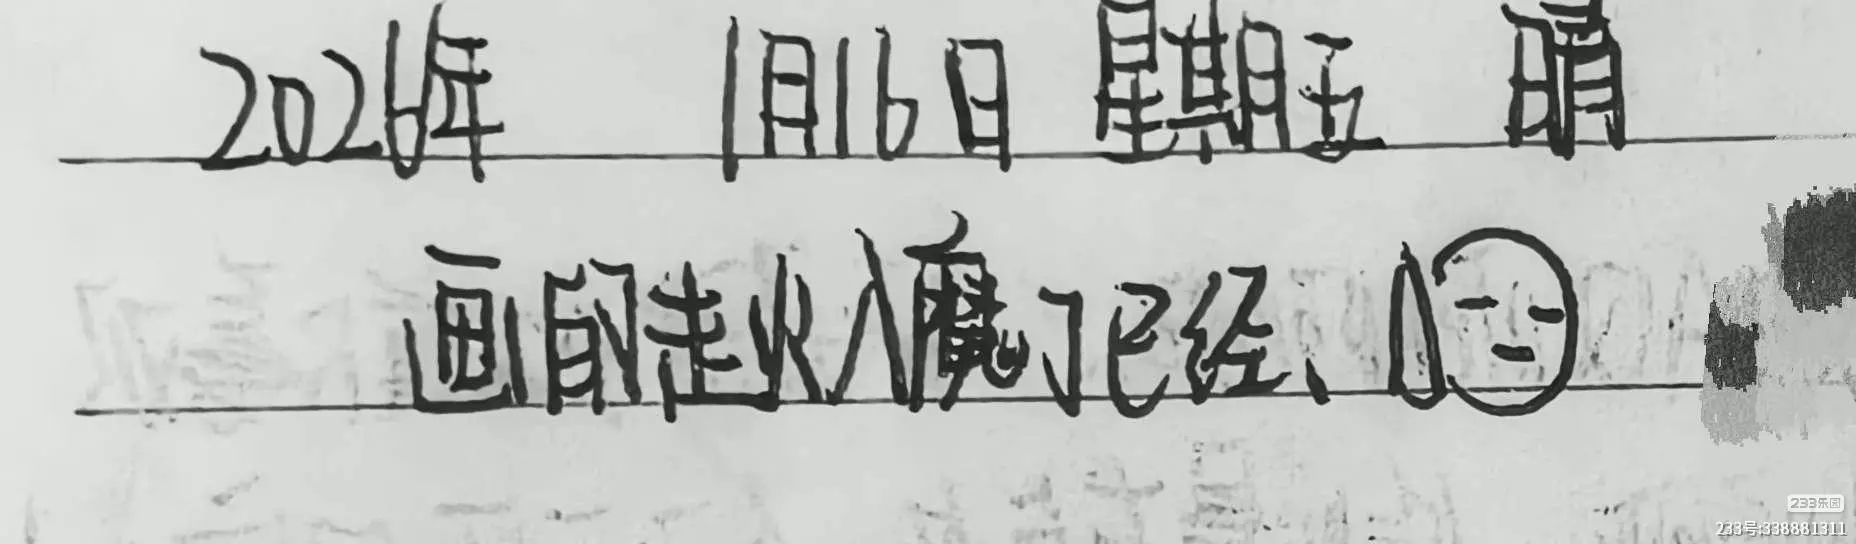 2026年 1月16日 星期五 晴
画的走火入魔了已经、
233乐园
233号:338881311